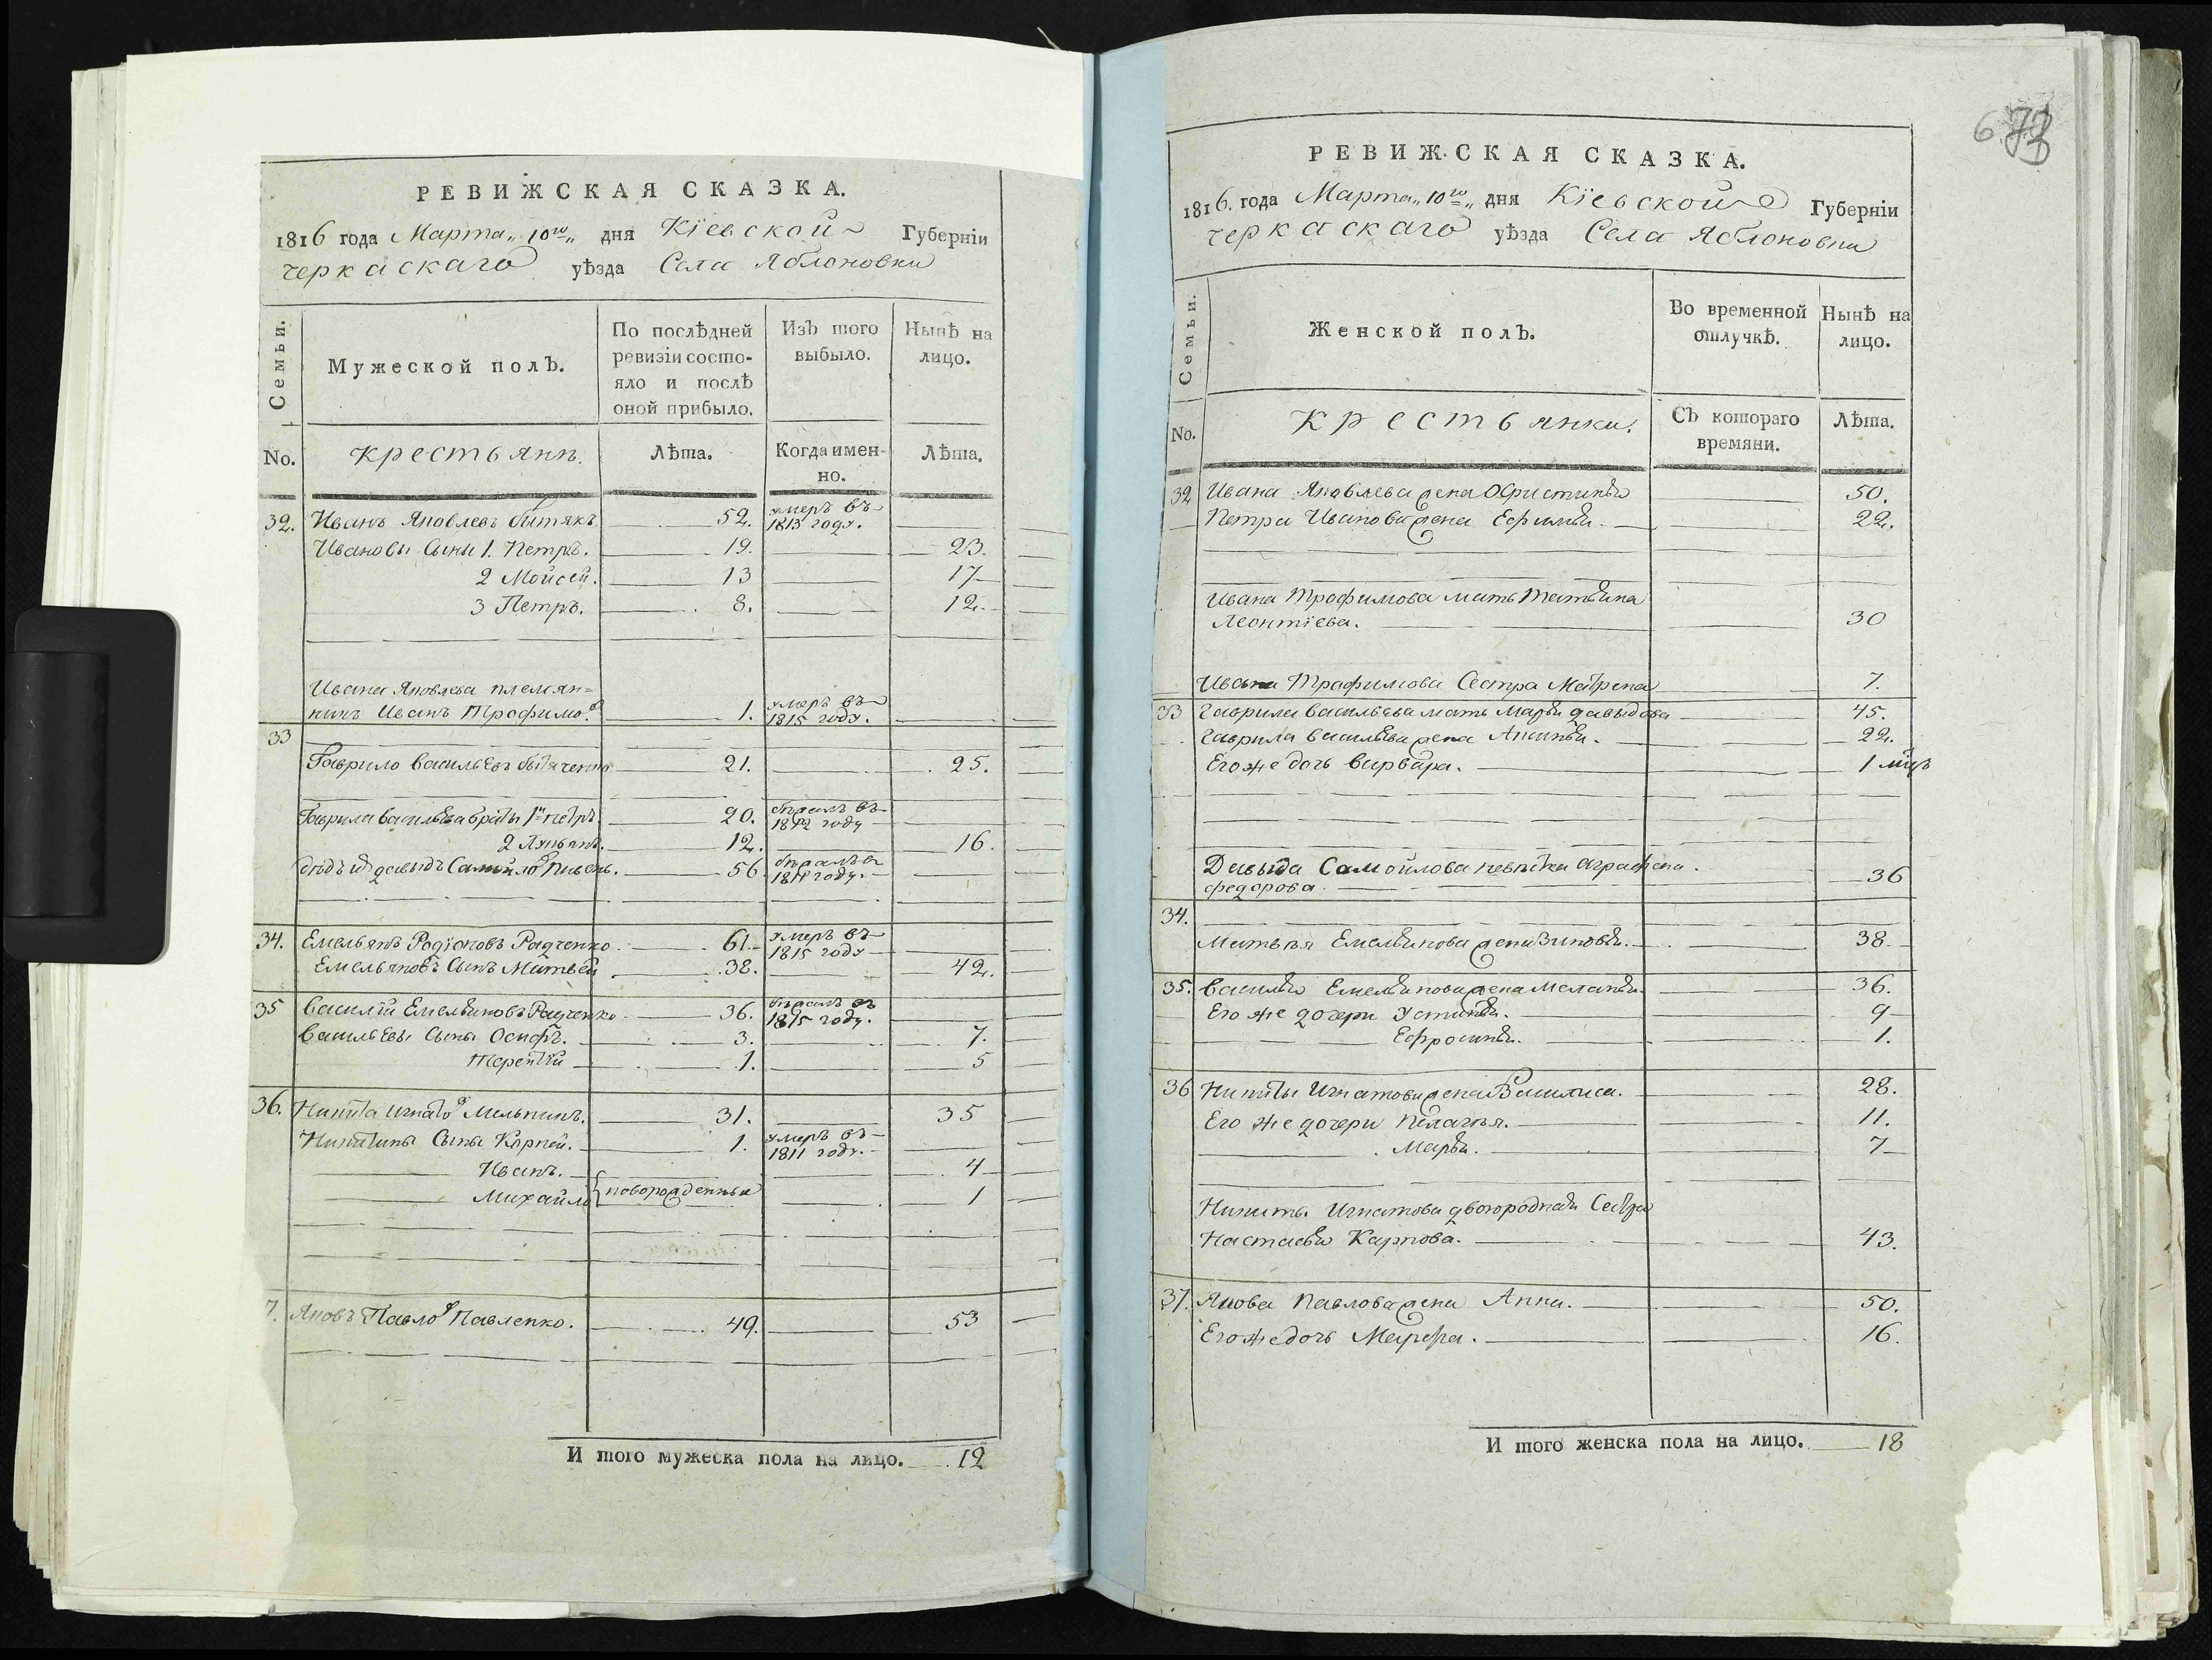 РЕВИЖСКАЯ СКАЗКА.
1816 года Марта „10го„ дня Кіевской Губерніи
черкаскаго уѣзда Села Яблоновки
Семьи.
Мужеской полЪ.
По послѣдней ревизіи состояло и послѣ оной прибыло.
ИзЪ того выбыло.
Нынѣ на лицо.
No.
крестьянъ.
Лѣта.
Когда именно.
Лѣта.
32. Иванъ Яковлевъ 52. умеръ въ 1813 году.
Ивановы Сыны 1. Петръ. 19. 23.
2 Мойсей. 13 17
3 Петръ. 8. 12.
Ивана Яковлева племян=
никъ Иванъ Трофимов. 1. умеръ въ 1815 году.
33
Гаврило Васильевъ 21. 25.
Гаврила Васильева браты 1й петръ 20. въ 1812 году
2 Лукьянъ. 12. 16.
дѣдъ их давыдъ Самойлов 56 1811 году.
34. Емельянъ Родіоновъ Радченко. 61. умеръ въ 1815 году
Емельяновъ Сынъ Матвей 38. 42.
35 Василій Емельяновъ Радченко 36. въ 1815 году.
Васильевы Сыны Осифъ. 3. 7.
Терентій 1. 5
36. Никита Игнатов Мельникъ. 31. 35
Никитины Сыны Корней. 1. умеръ въ 1811 году.
Иванъ. 4
Михайло новорожденныя 1
7. Яковъ Павлов Павленко. 49. 53
И того мужеска пола на лицо. 12
673
РЕВИЖСКАЯ СКАЗКА.
1816. года Марта „10го„ дня Кіевской Губерніи
черкаскаго уѣзда Села Яблоновки
Семьи.
Женской полЪ.
Во временной отлучкѣ.
Нынѣ на лицо.
No.
крестьянки.
СЪ котораго времяни.
Лѣта.
32 Ивана Яковлева жена Христинья 50.
Петра Иванова жена Ефимья. 22.
Ивана Трофимова мать Татьяна
Леонтіева. 30
Ивана Трафимова Сестра Матрена 7.
33 Гаврила Васильева мать Марья давыдова 45.
Гаврила Васильева жена Аксинья. 22.
Его же дочь Варвара. 1 мцъ
Давыда Самойлова невѣстка аграфена
федорова 36
34.
Матвѣя Емельянова жена Зиновья. 38
35. Василья Емельянова жена Меланья. 36.
Его же дочери Устинья. 9
Ефросинья. 1.
36 Никиты Игнатова жена Василиса. 28.
Его же дочери Пелагея. 11.
Марья. 7
Никиты Игнатова двоюродная Сестра
Настасья Карпова. 43.
37. Якова Павлова жена Анна. 50.
Его же дочь Марфа. 16.
И того женска пола на лицо. 18